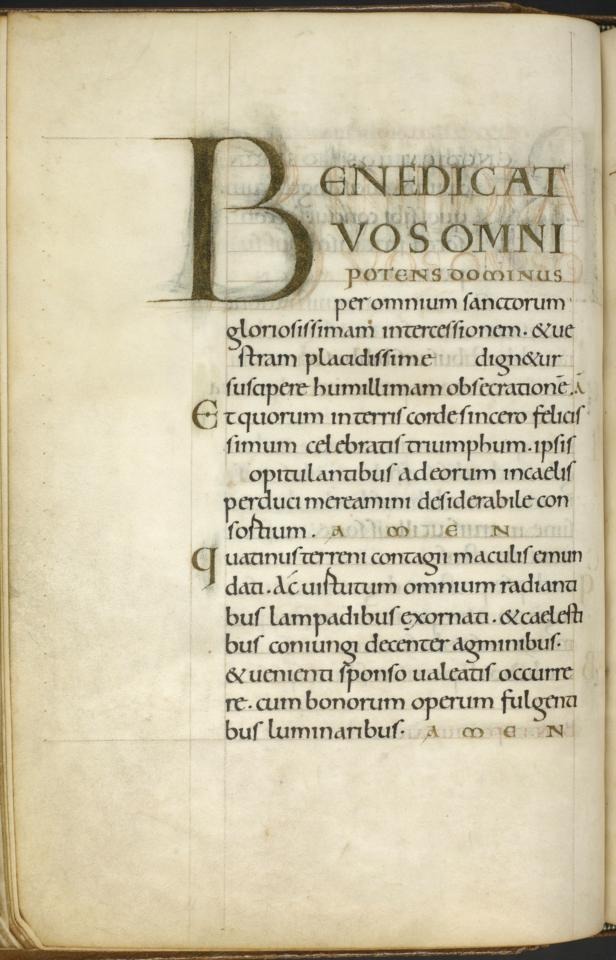 BENEDICAT
VOS OMNI
POTENS DOMINUS
per omnium sanctorum
gloriosissimam intercessionem. & ue
stram placidissime dign&ur
suscipere humillimam obsecrationē. Ā
Et quorum in terris corde sincero felicis
simum celebratis triumphum. ipsis
opitulantibus ad eorum in caelis
perduci mereamini desiderabile con
sortium. A M E N
quatinus terreni contagii maculis emun
dati. Ac uirtutum omnium radianti
bus lampadibus exornati. & caelesti
bus coniungi decenter agminibus.
& uenienti sponso ualeatis occurre
re. cum bonorum operum fulgenti
bus luminaribus. A M E N